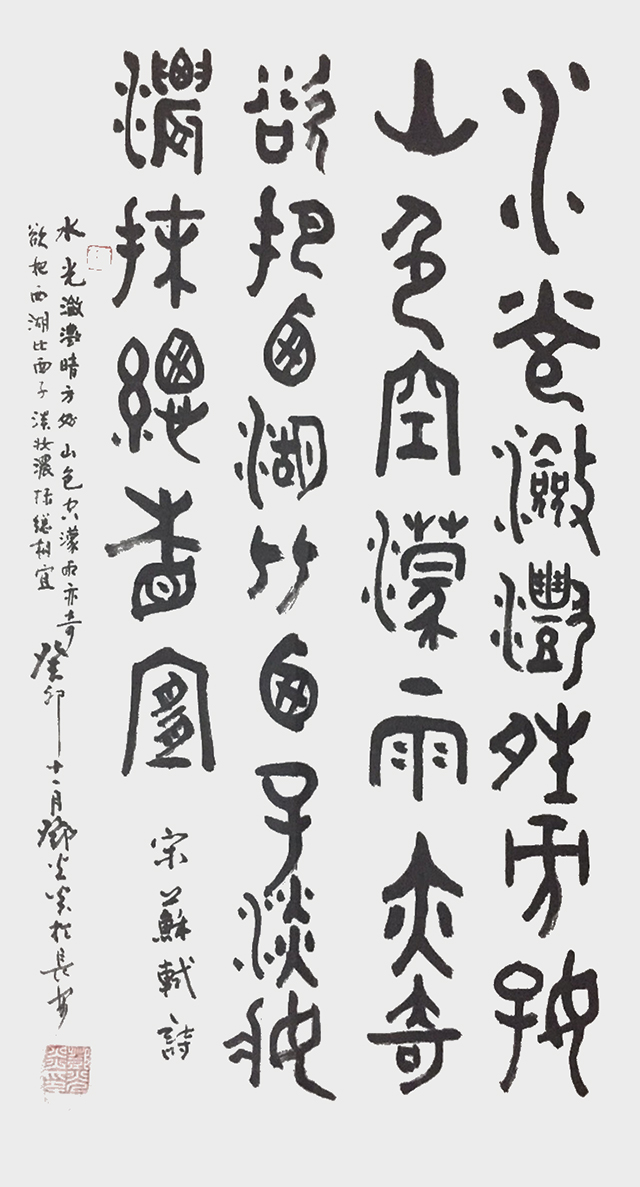 水光瀲灩晴方好
山色空濛雨亦奇
欲把西湖比西子淡妝
濃抹總相宜
宋蘇軾詩
水光瀲灩晴方好山色空濛雨亦奇
欲把西湖比西子淡妝濃抹總相宜
癸卯十一月鄧光於長安